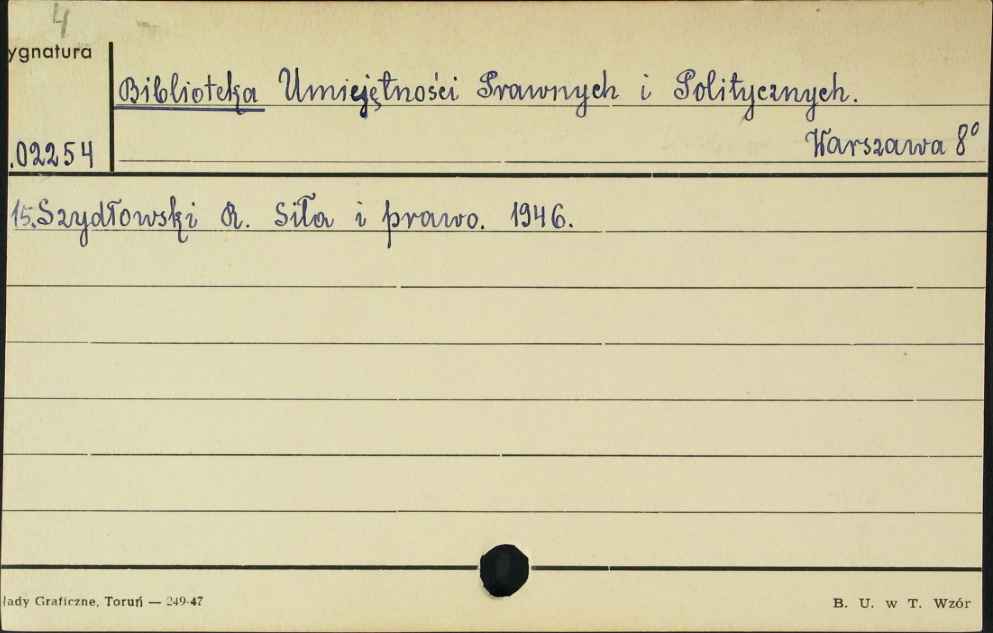 4
ygnatura
Biblioteka Umiejętności Prawnych i Politycznych.
.02254
Warszawa 8°
15. Szydłowski R. Siła i prawo. 1946.
łady Graficzne, Toruń — 249-47
B. U. w T. Wzór